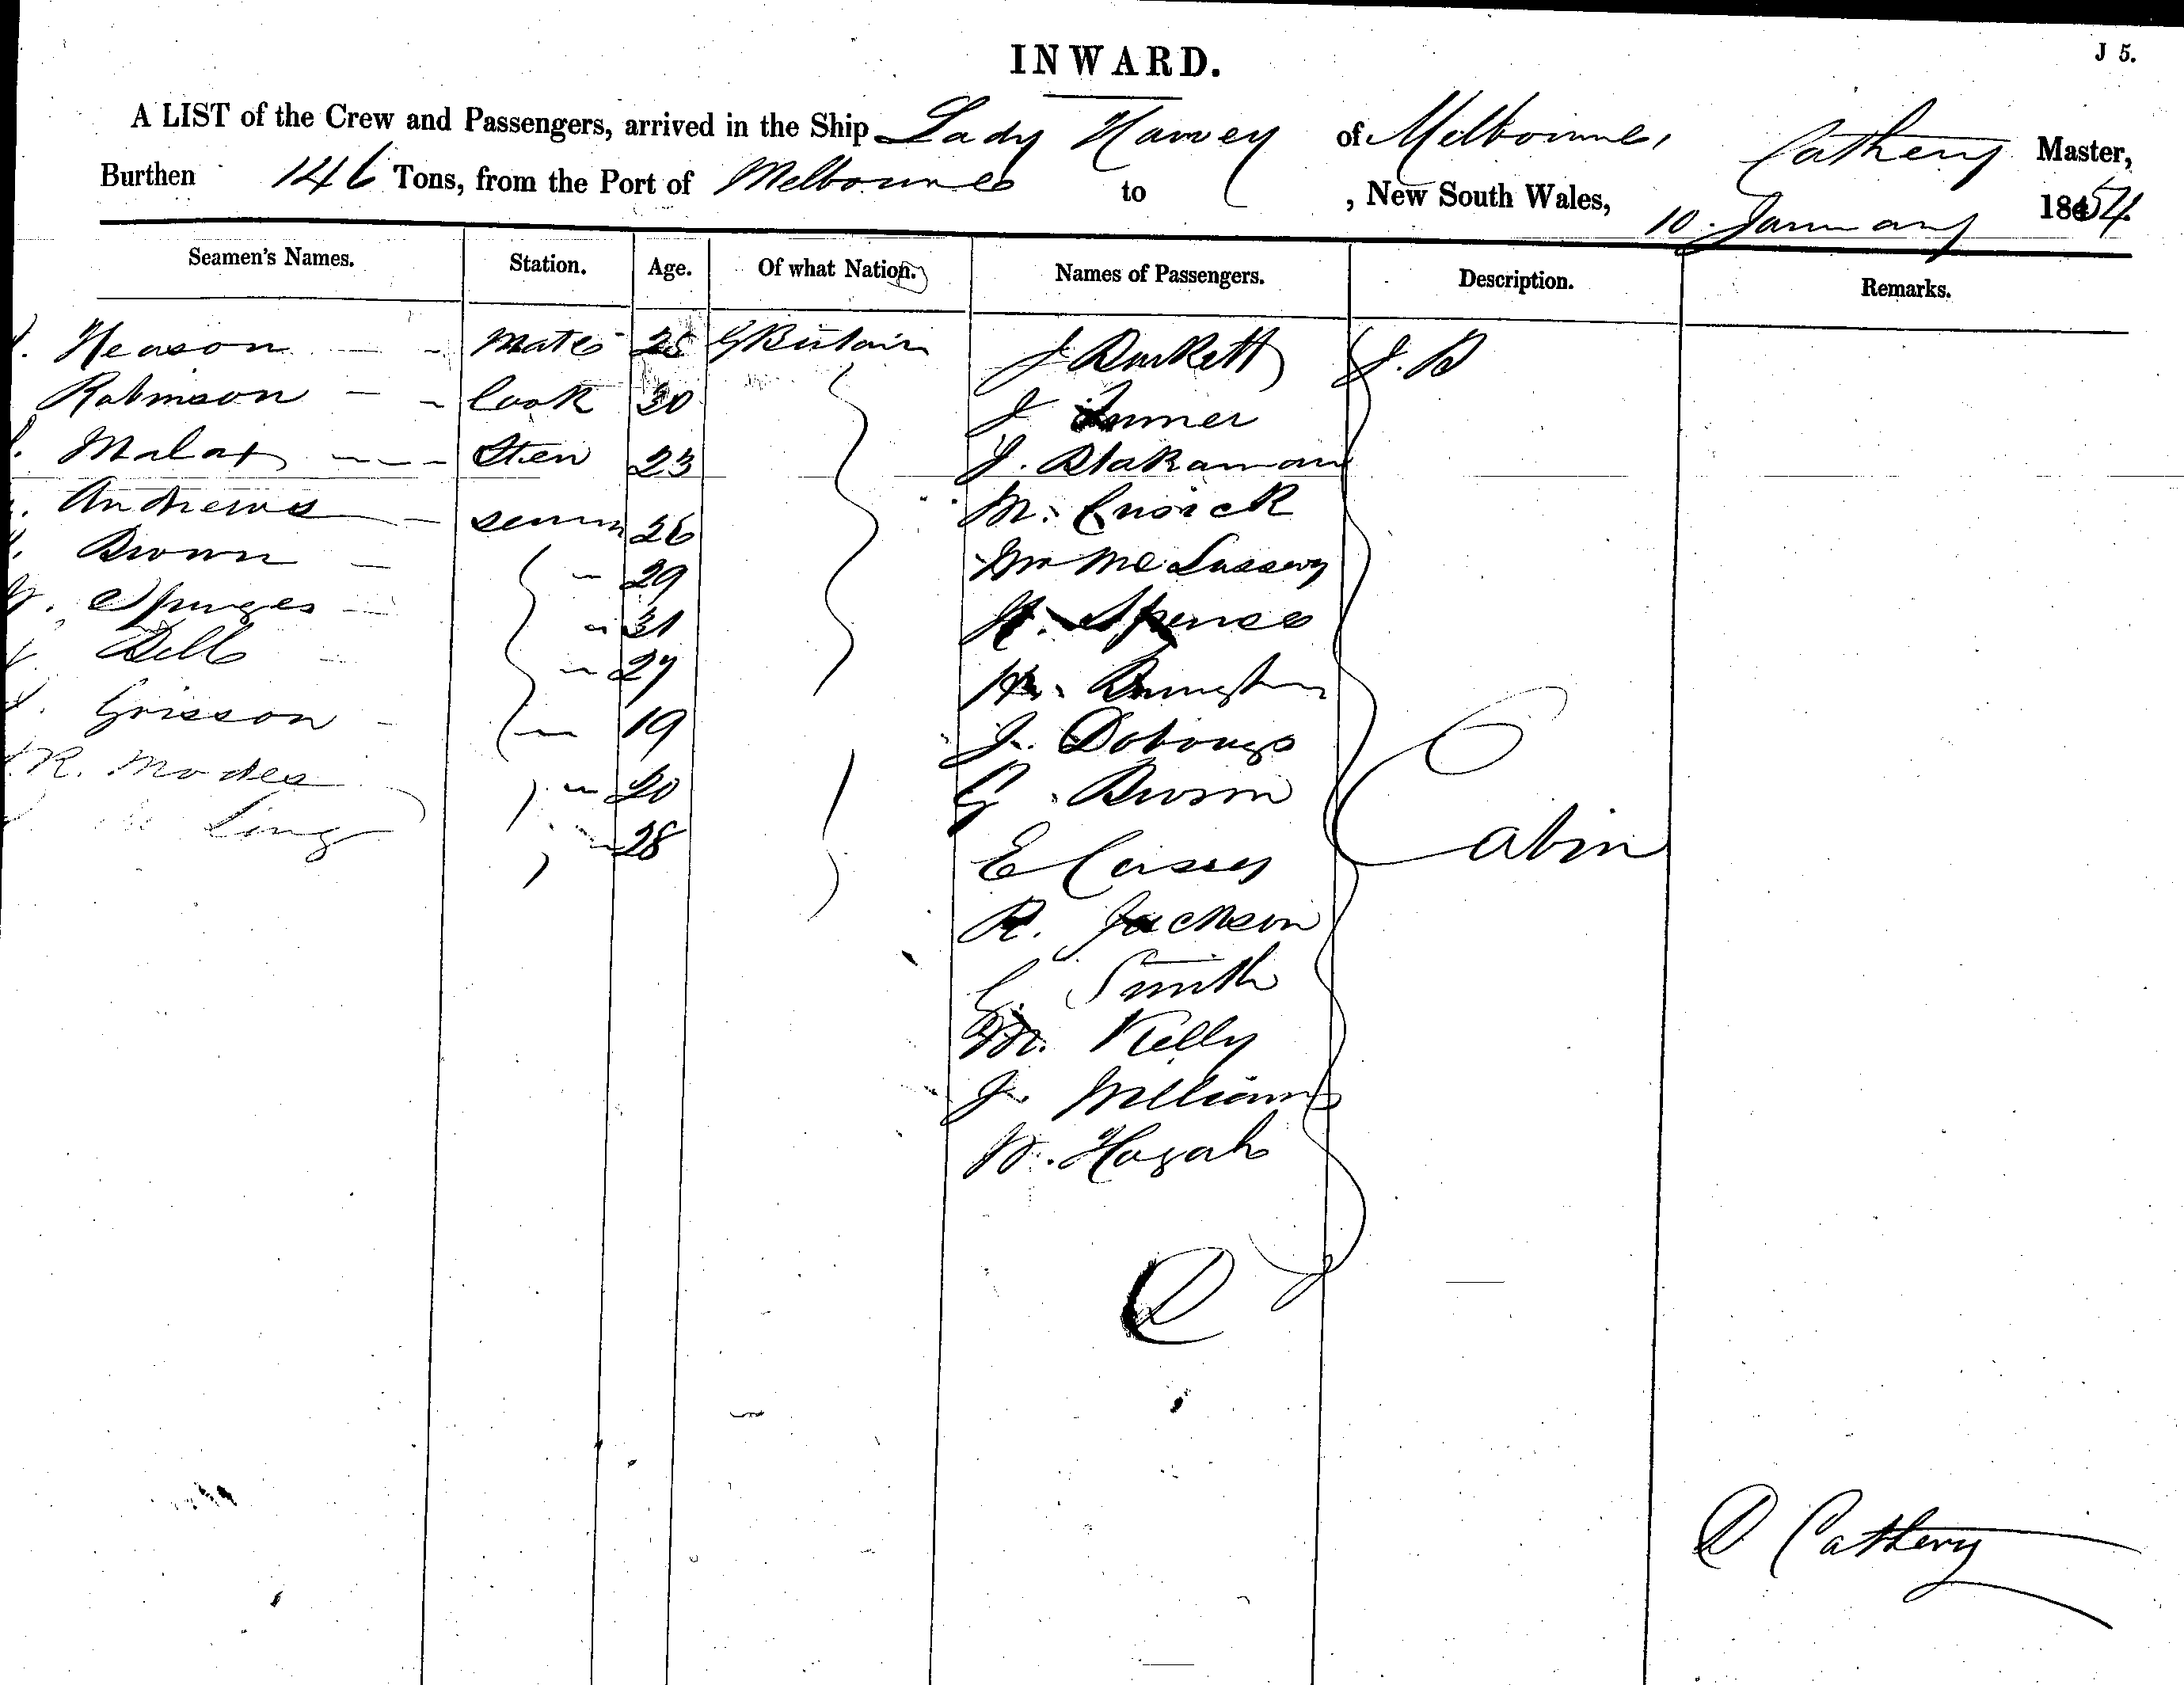 INWARD.
J 5.
A LIST of the Crew and Passengers, arrived in the Ship Lady Harvey of Melbourne, Cathery Master,
Burthen 146 Tons, from the Port of Melbourne to , New South Wales, 10. January 1854.
Seamen's Names. Station. Age. Of what Nation. Names of Passengers. Description. Remarks.
Heason Mate 25 G Britain J Burkett J. B
Robinson Cook 30 J
Stew 23 J. Blakaman
Andrews seamn 26 M. Cusick
Brown 29 Mc
Spurges 31 Spence
Bell 27
Grisson 19 J.
R. Modes 20 G. Brown
Ling 28 E Casey
R. Jackson
G. Smith
Cabin
M. Kelly
J. Williams
W. Hogah
D Cathery